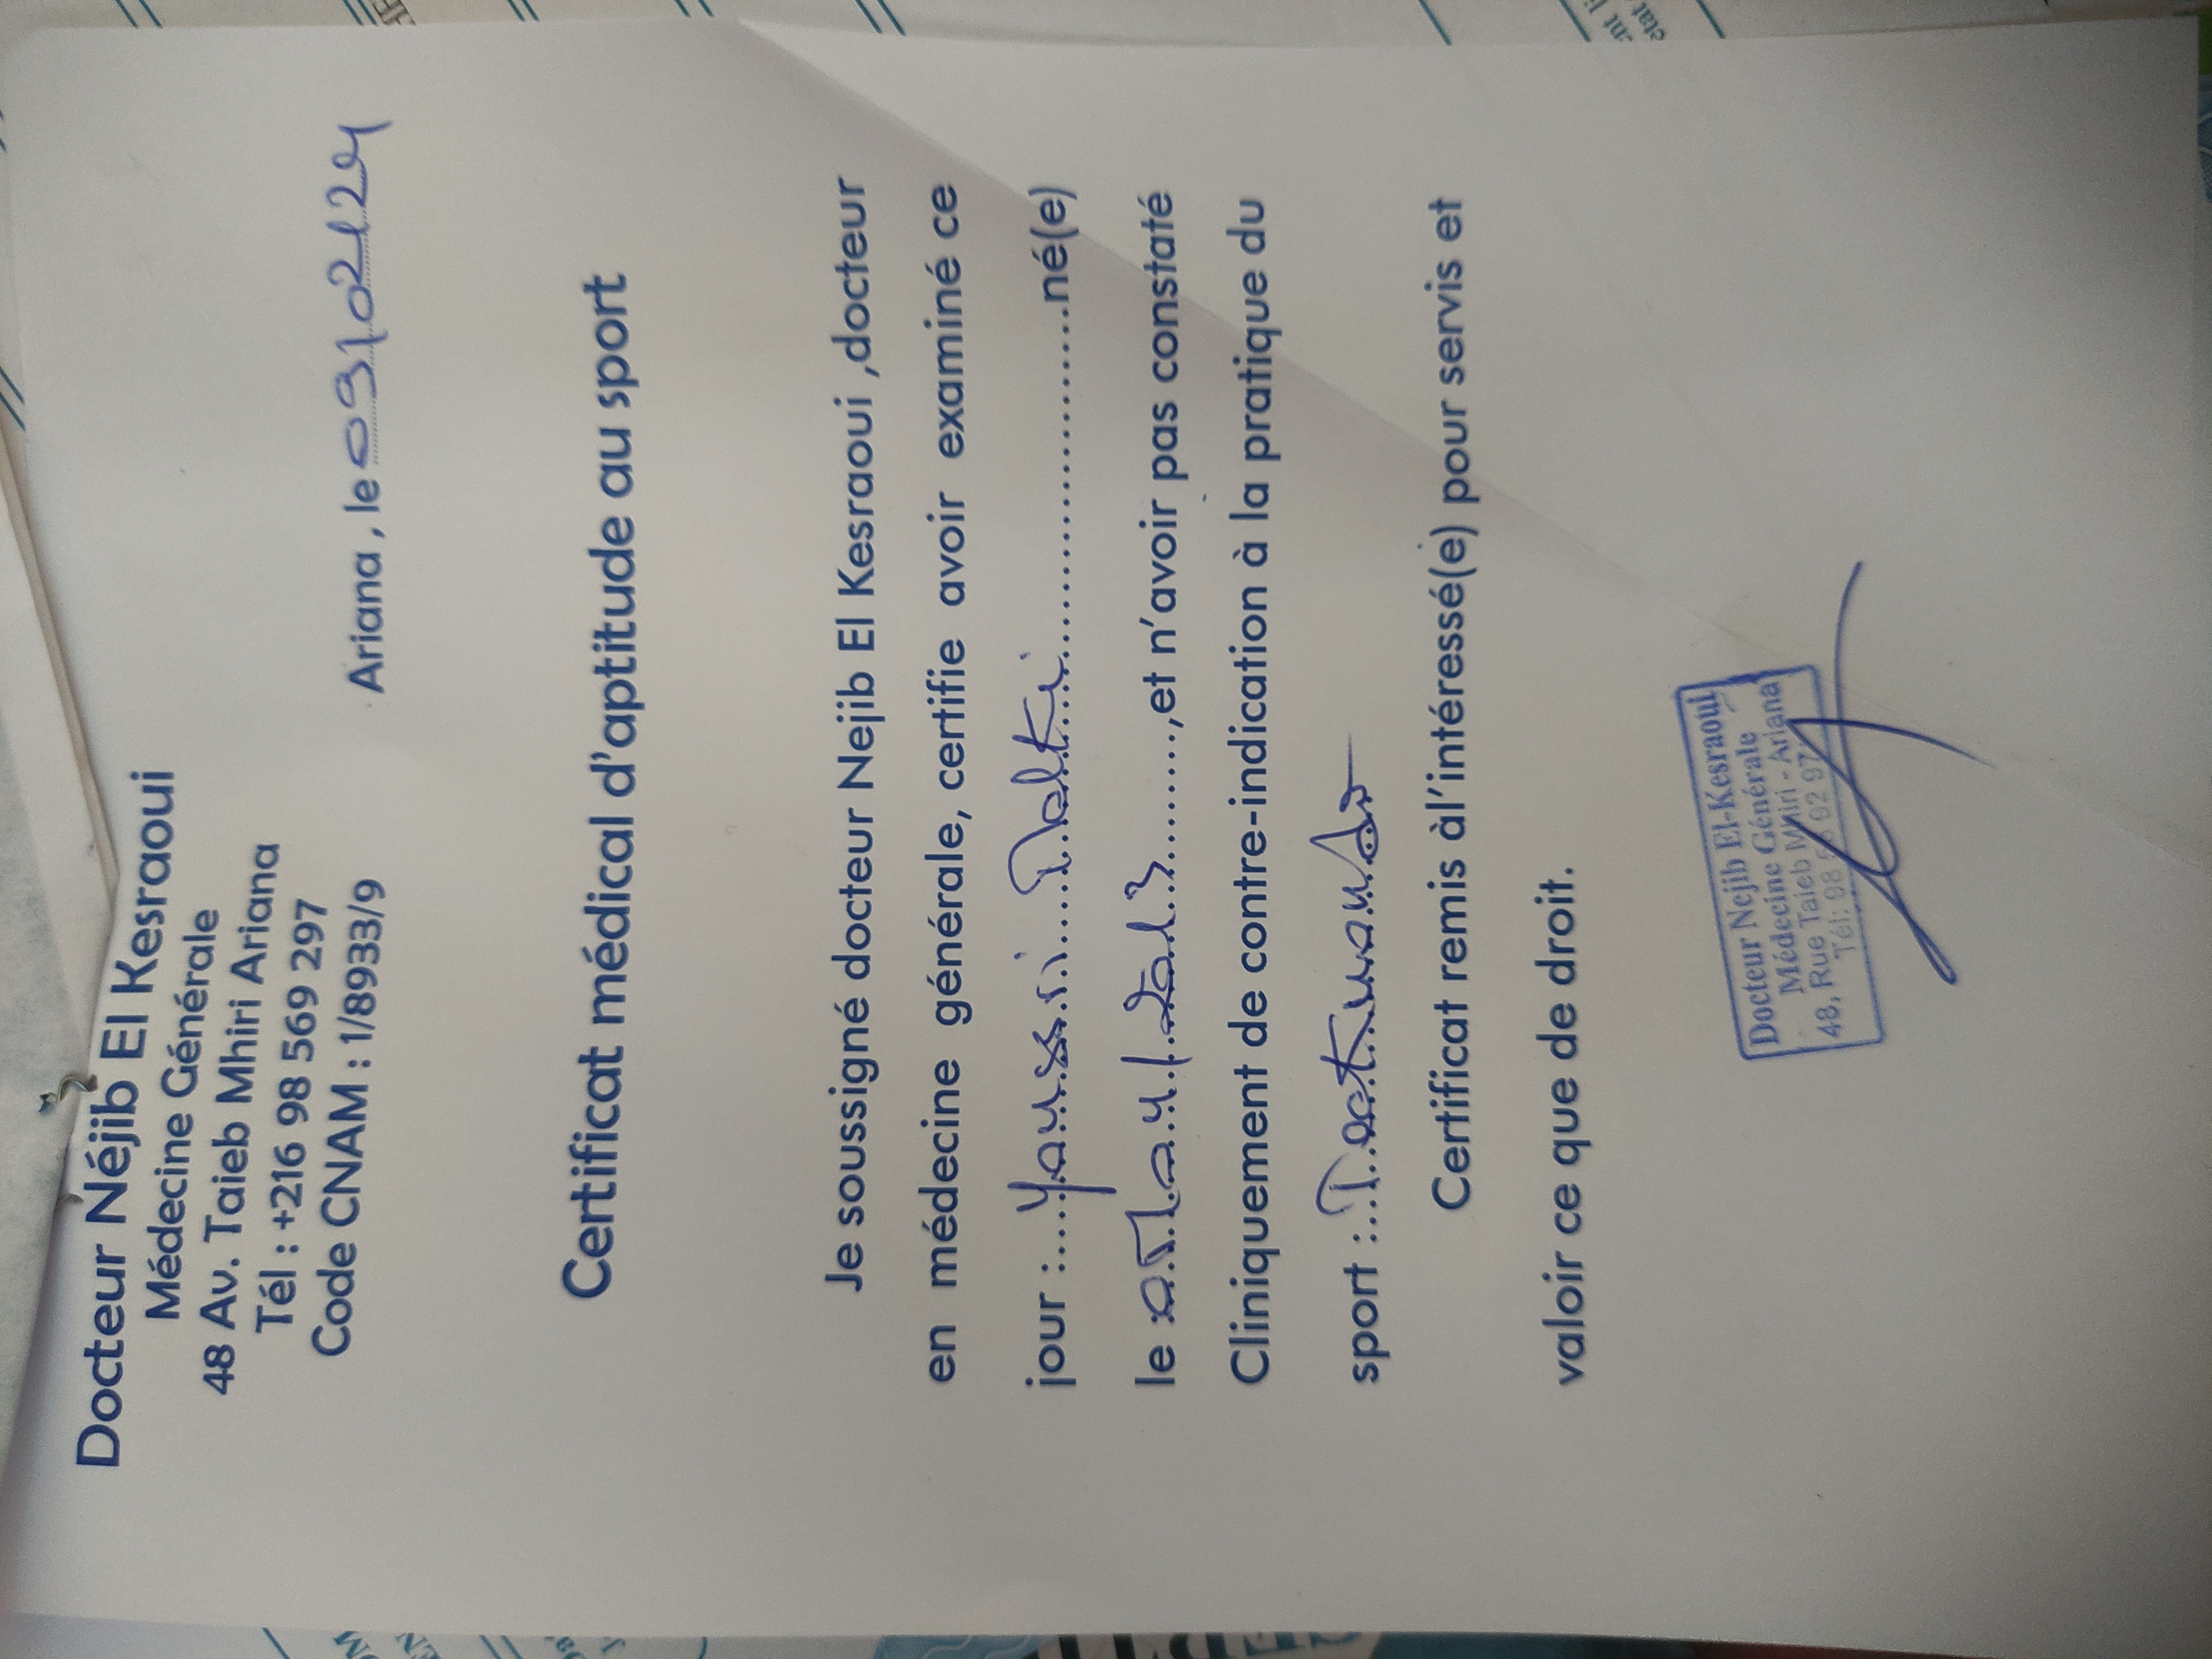 Docteur Néjib El Kesraoui
Médecine Générale
48 Av. Taieb Mhiri Ariana
Tél : +216 98 569 297
Code CNAM : 1/8933/9
Ariana , le 03/02/24
Certificat médical d'aptitude au sport
Je soussigné docteur Nejib El Kesraoui ,docteur
en médecine générale, certifie avoir examiné ce
jour :....Youssi.........né(e)
le ........,et n'avoir pas constaté
Cliniquement de contre-indication à la pratique du
sport :..Taekwondo
Certificat remis àl'intéressé(e) pour servis et
valoir ce que de droit.
Docteur Nejib El-Kesraoui
Médecine Générale
48, Rue Taieb Mhiri - Ariana
Tél: 98 5